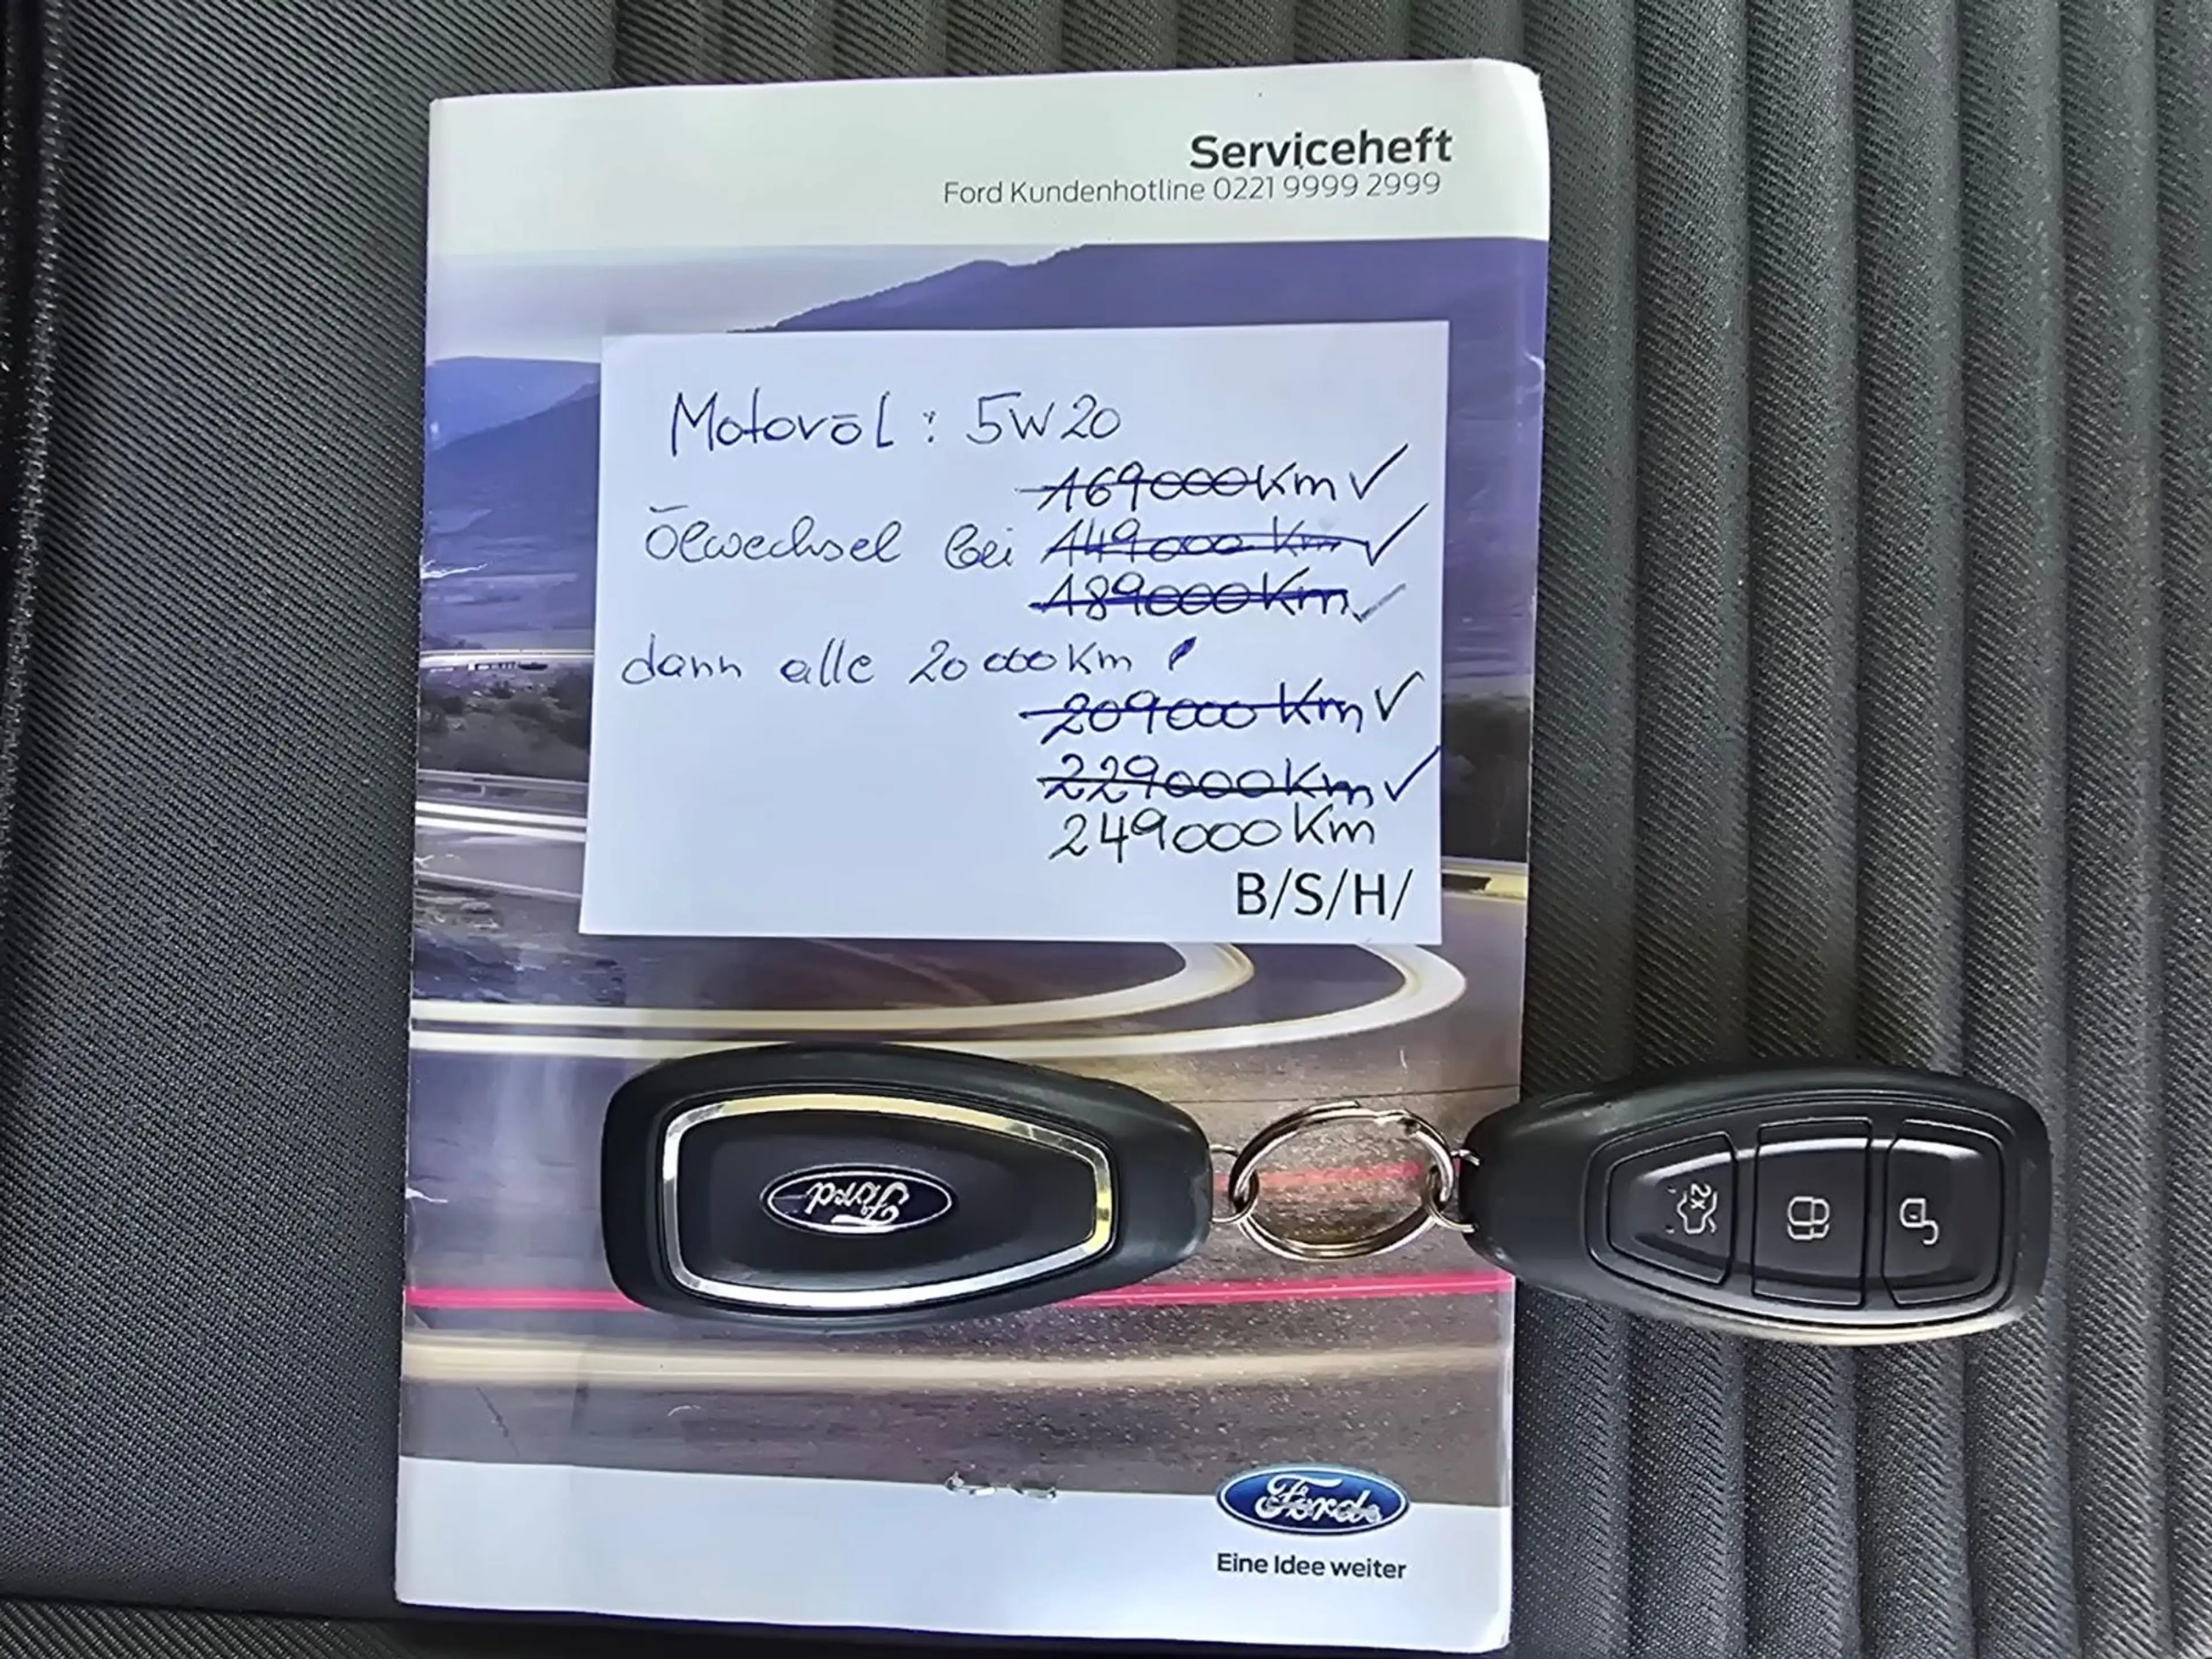 Serviceheft
Ford Kundenhotline 0221 9999 2999
Motoröl: 5W20
169000Km ✓
Ölwechsel bei 149000 Km ✓
189000Km ✓
dann alle 20000Km !
209000 Km ✓
229000Km ✓
249000Km
B/S/H/
Ford
2x
Ford
Eine Idee weiter